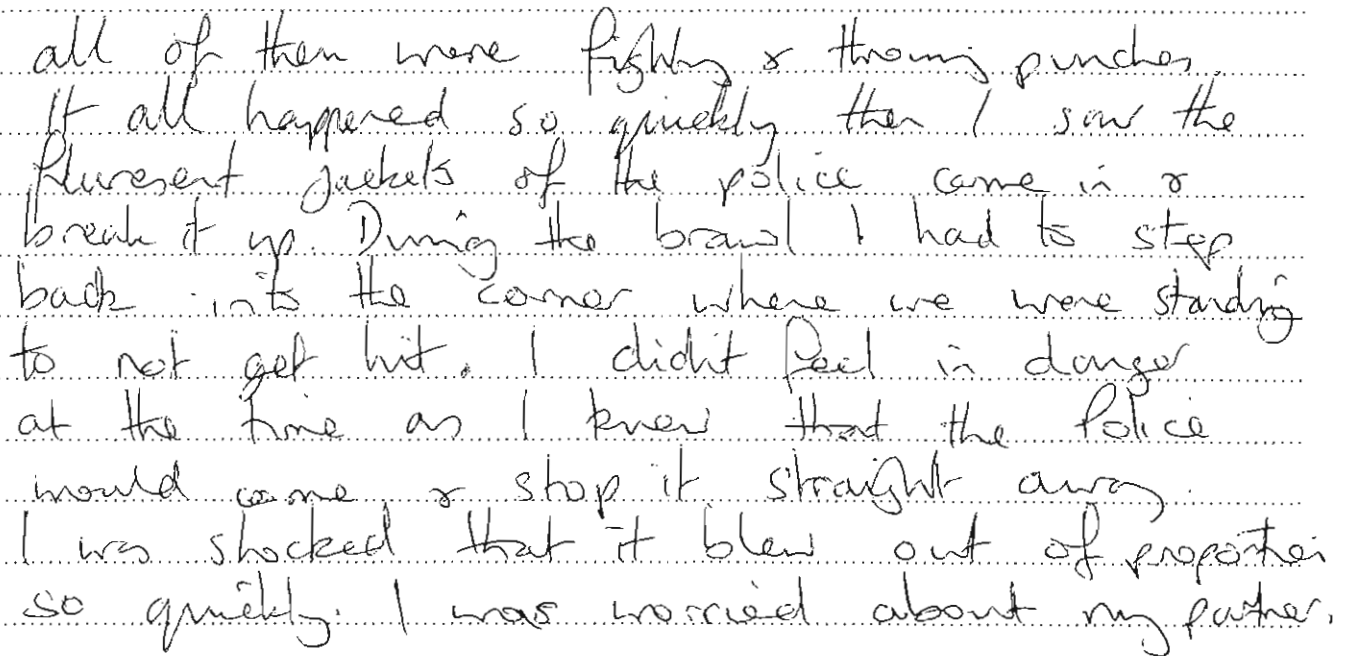 all of them were fighting & throwing punches.
It all happened so quickly then I saw the
fluresent jackets of the police came in &
break it up. During the brawl I had to step
back into the corner where we were standing
to not get hit. I didn't feel in danger
at the time as I knew that the Police
would come & stop it straight away.
I was shocked that it blew out of proportion
so quickly. I was worried about my partner.